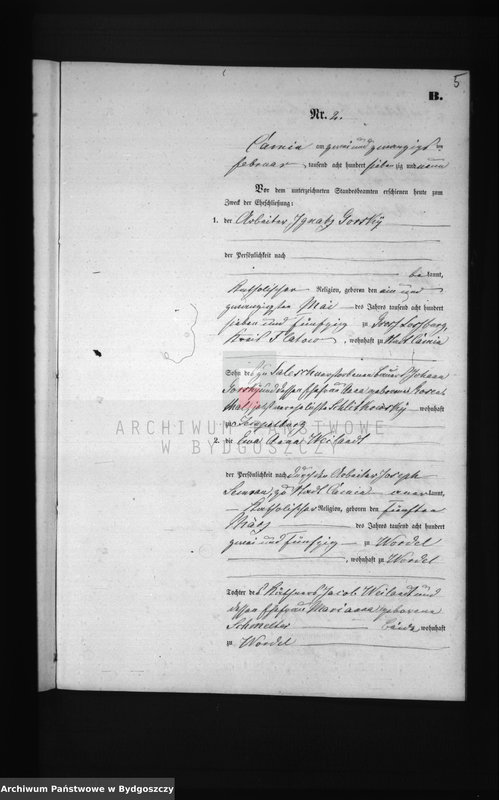 5
B.
Nr. 2.
Camin am zwei und zwanzigsten
Februar tausend acht hundert siebenzig und neun
Vor dem unterzeichneten Standesbeamten erschienen heute zum
Zweck der Eheschließung:
1. der Arbeiter Ignatz Gorsky
der Persönlichkeit nach
bekannt,
katholischer Religion, geboren den ein und
zwanzigsten Mai des Jahres tausend acht hundert
sieben und fünfzig zu Groß Loßburg,
Kreis Flatow, wohnhaft zu Stadt Camin
Sohn des zu verstorbenen Johann
Gorsky und dessen Ehefrau geborene
jetzt verehelichte wohnhaft
zu Tempelburg
2. die Eva Anna Weilandt
der Persönlichkeit nach durch den Arbeiter Joseph
zu Stadt Camin anerkannt,
katholischer Religion, geboren den fünften
März des Jahres tausend acht hundert
zwei und fünfzig zu Wordel
, wohnhaft zu Wordel
Tochter des Käthners Jacob Weilandt und
dessen Ehefrau Marianna geborene
Schmelter beide wohnhaft
zu Wordel
ARCHIWUM PAŃSTWOWE
W BYDGOSZCZY
Archiwum Państwowe w Bydgoszczy